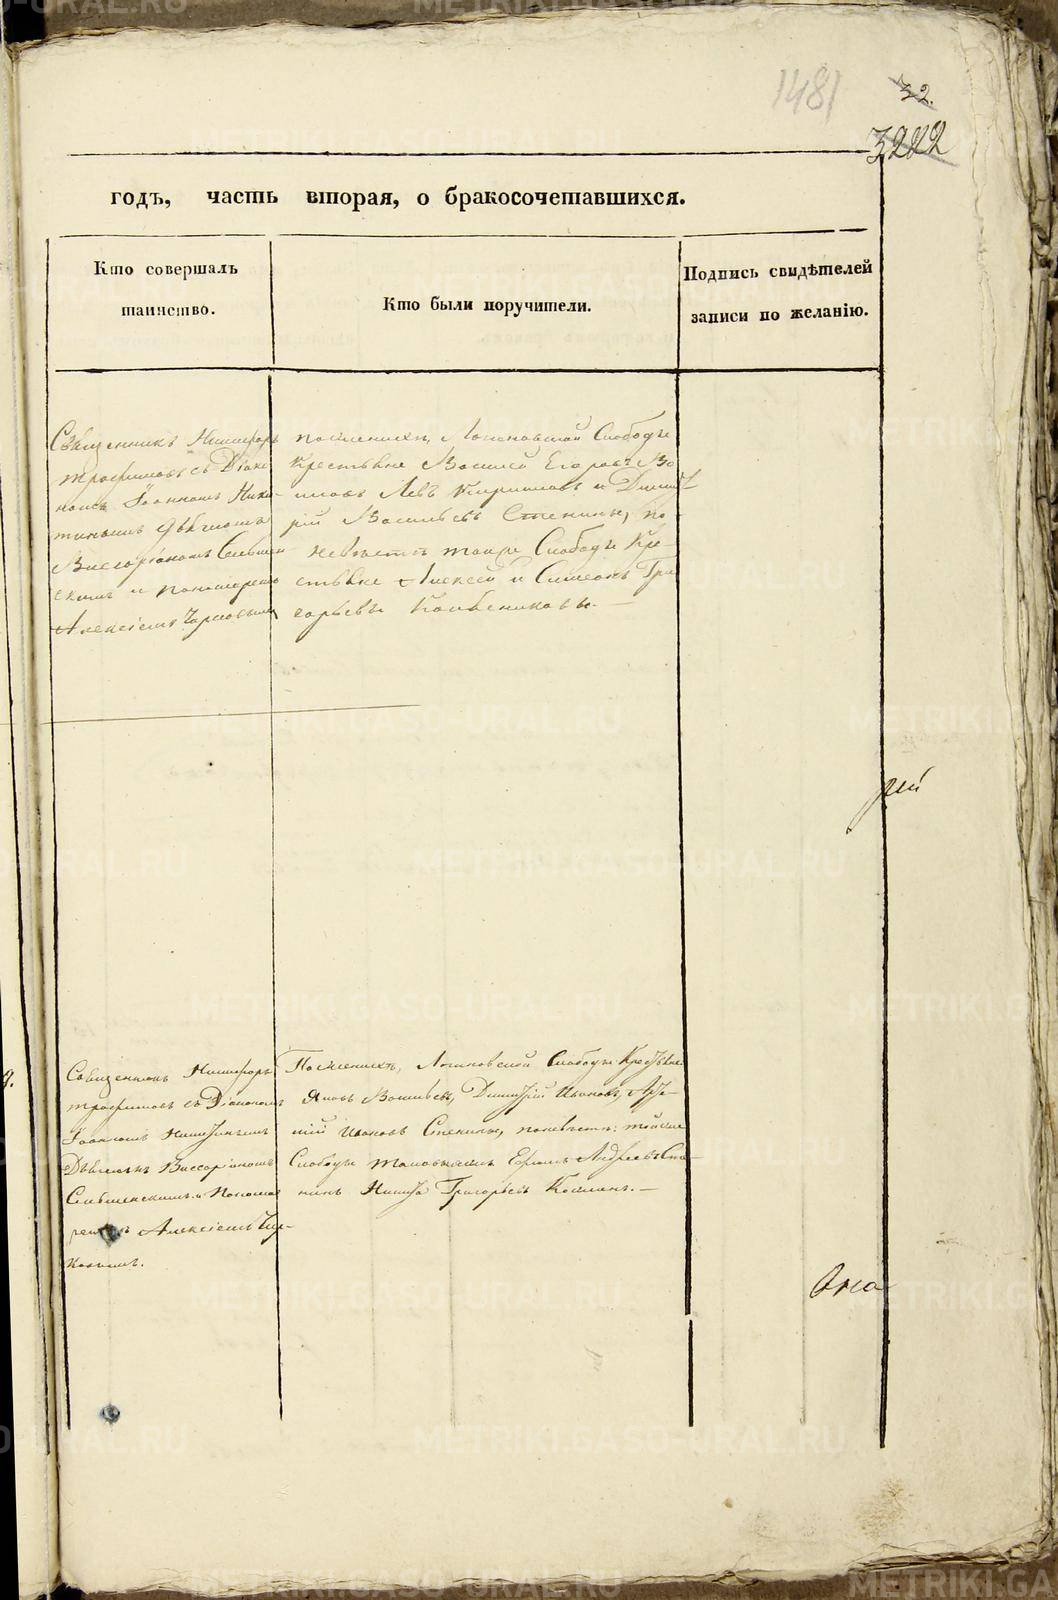 1481
32.
3222
годъ, часть вторая, о бракосочетавшихся.
Кто совершалъ
таинство.
Кто были поручители.
Подпись свидѣтелей
записи по желанію.
Священникъ Никифоръ
Трофимовъ съ Діако
номъ Іоанномъ Ники-
тинымъ Дьячкомъ
Виссаріономъ
и пономаремъ
Алексіемъ
по женихѣ, Логиновской Слободы
Крестьяне Василій Егоровъ Во
иновъ Левъ Кириловъ и Димит
рій Васильевъ Стенины, по
невѣстѣ тоиже Слободы Кре
стьяне Алексѣй и Симеонъ Гри
горьевы
рей
Священникъ Никифоръ
Трофимовъ съ Діакономъ
Іоанномъ Никитинымъ
Дьячкомъ Виссаріономъ
и Понома
ремъ Алексіемъ
По женихѣ, Логиновской Слободы Крестьяне
Яковъ Васильевъ, Димитрій Ивановъ,
Ивановъ Стенины, по невѣстѣ: тойже
Слободы Ефимъ Андреевъ Сте
нинъ Никита Григорьевъ
Она
METRIKI.GASO-URAL.RU